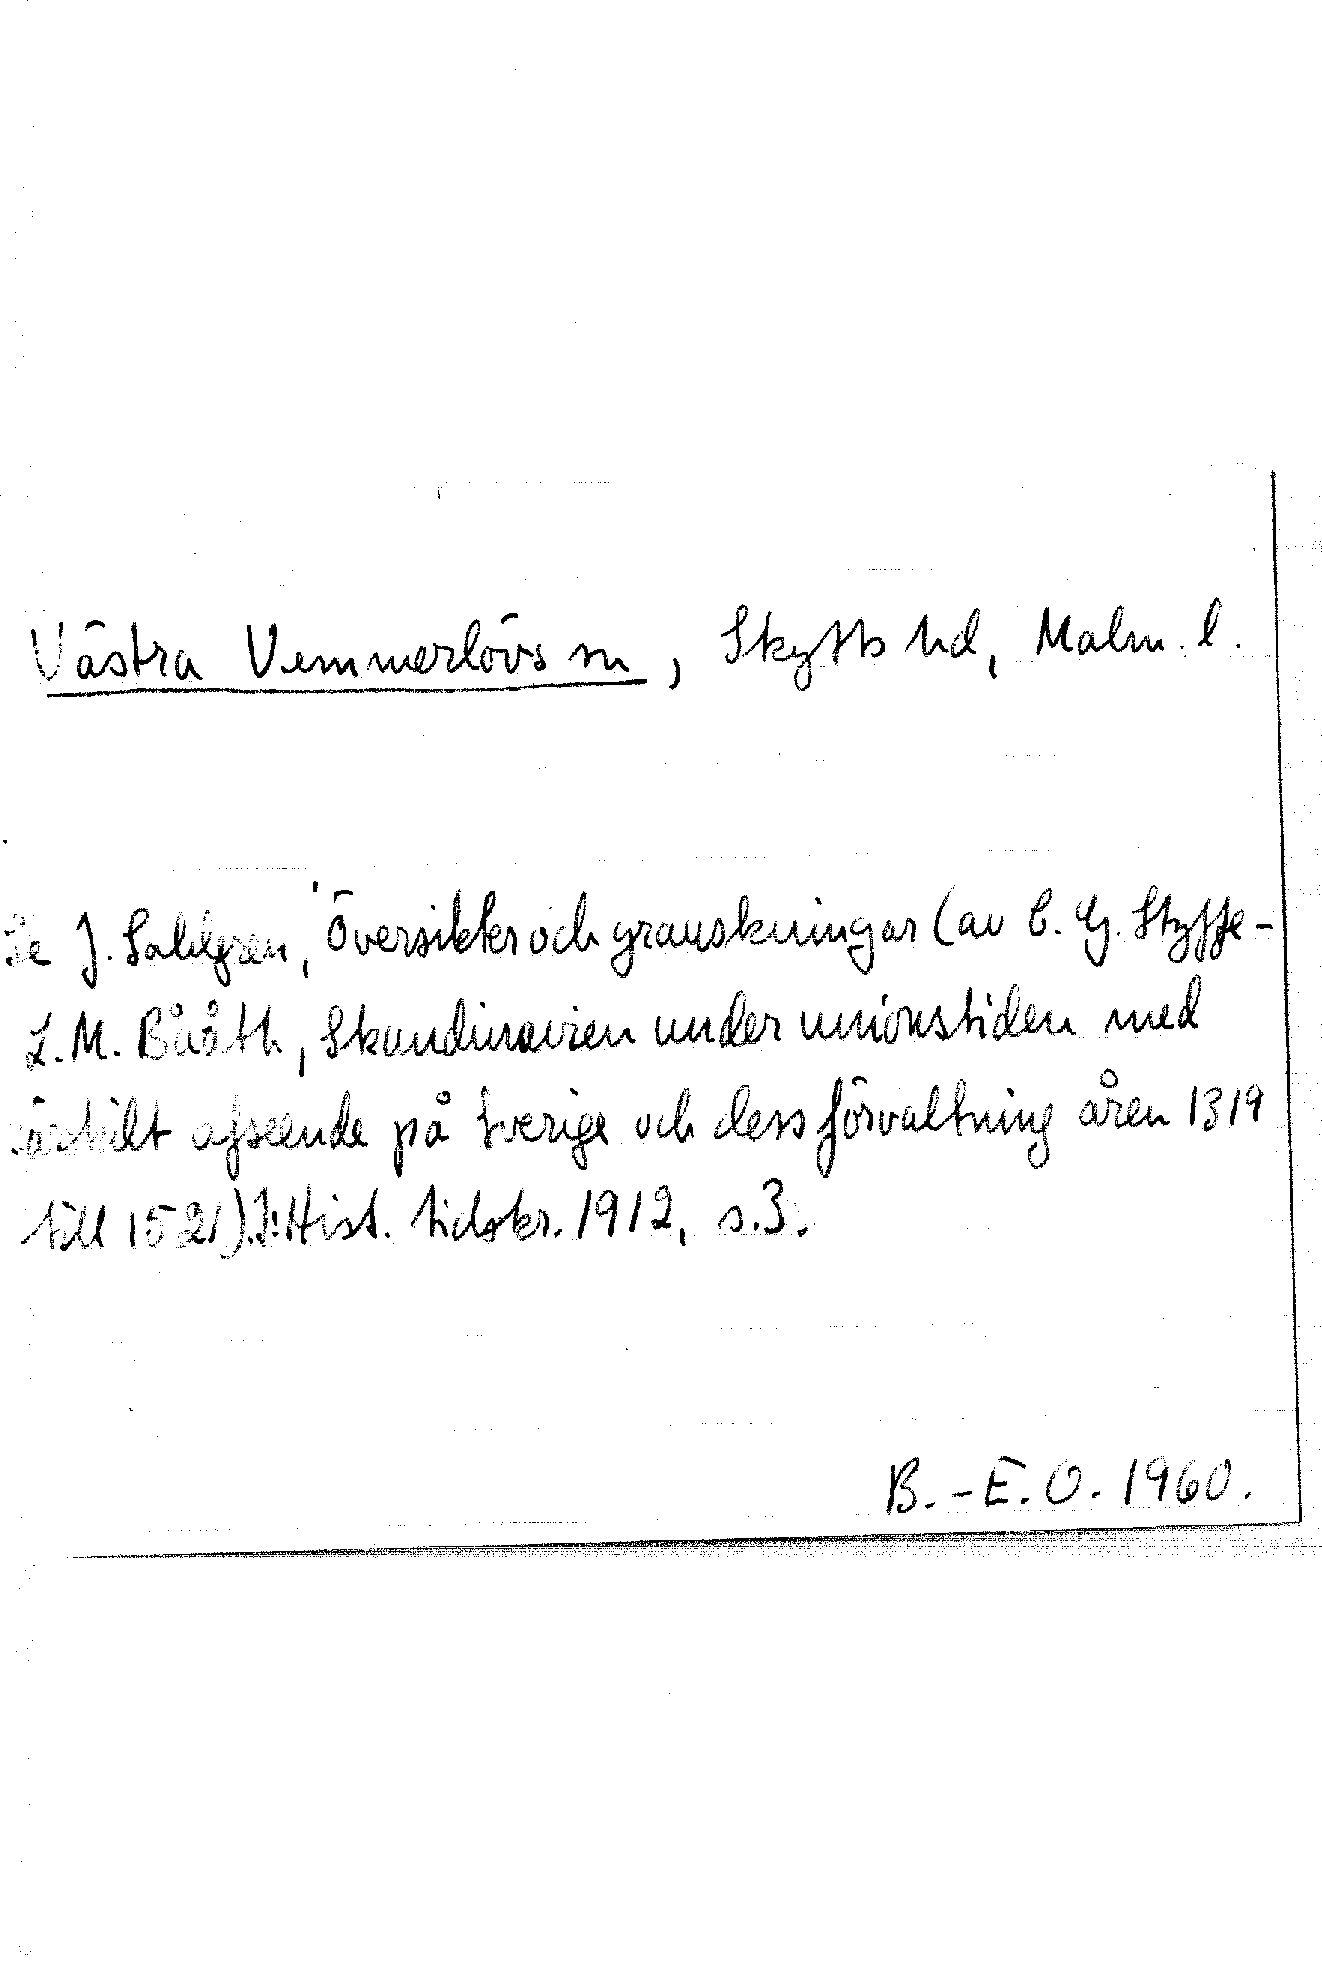 Västra Vemmerlövs sn, Skytts hd, Malm. l.
Se J. Sahlgren, Översikter och granskningar (av C. G. Styffe-
L. M. Bååth, Skandinavien under unionstiden med
särskilt afseende på Sverige och dess förvaltning åren 1319
till 1521). I: Hist. tidskr. 1912, s. 3.
B.-E. O. 1960.